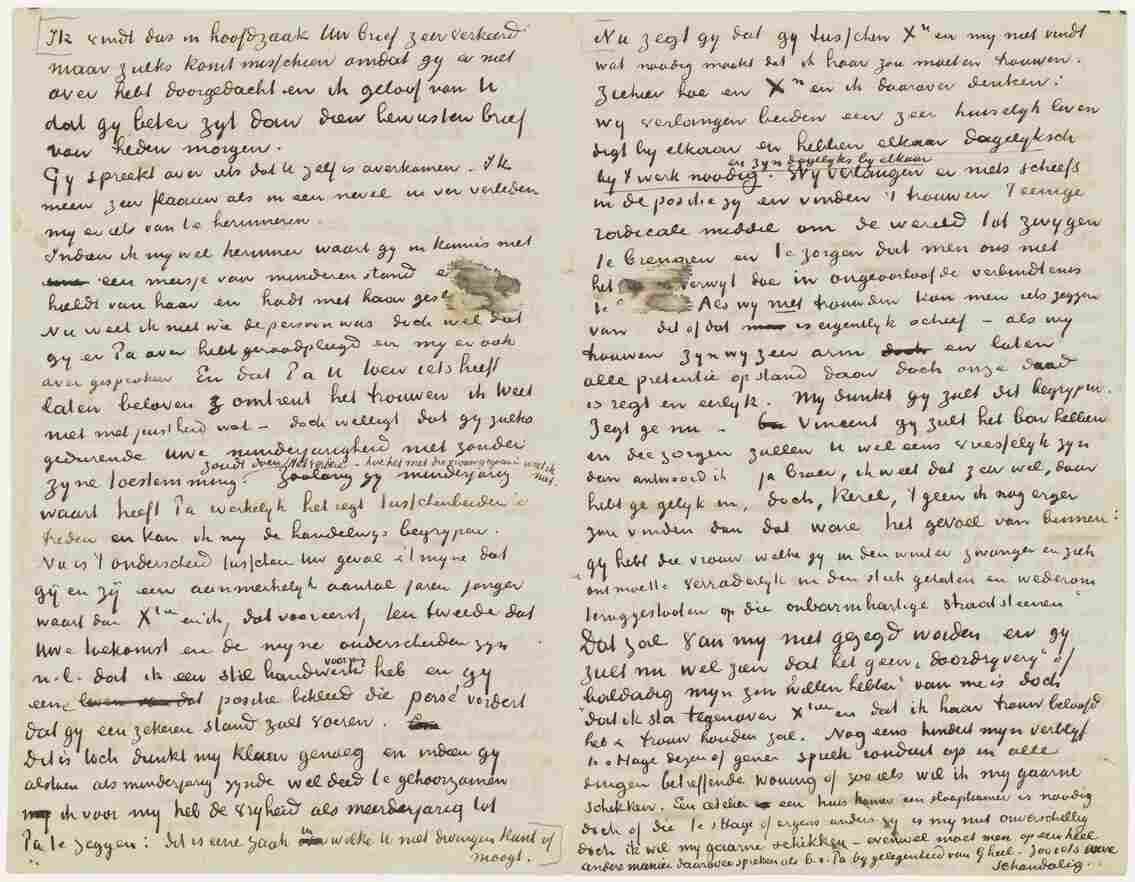 Ik vindt dus in hoofdzaak Uw brief zeer verkeerd
maar zulks komt misschien omdat gy er niet
over hebt doorgedacht en ik geloof van U
dat gy beter zyt dan dien bewusten brief
van heden morgen.
Gy spreekt over iets dat U zelf is overkomen. Ik
meen zeer flaauw als in een nevel in ver verleden
my er iets van te herinneren.
Indien ik my wel herinner waart gy in kennis met
een meisje van minderen stand
hieldt van haar en hadt met haar
Nu weet ik niet wie de persoon was doch wel dat
gy er Pa over hebt geraadpleegd en my er ook
over gesproken En dat Pa U toen iets heeft
laten beloven omtrent het trouwen ik weet
niet met juistheid wat – doch wellicgt dat gy zulks
gedurende Uwe minderjarigheid niet zonder
zoudt doen
zyne toestemming. Zoolang gy minderjarig
waart heeft Pa werkelyk het regt tusschenbeiden te
treden en kan ik my de handelwys begrypen.
Nu is 't onderscheid tusschen Uw geval & 't myne dat
gij en zij een aanmerkelyk aantal jaren jonger
waart dan Xtien en ik, dat vooreerst, ten tweede dat
Uwe toekomst en de myne onderscheiden zyn
n.l. dat ik een stiel handwerk heb en gy
eene positie bekleed die persé vordert
dat gy een zekeren stand zoet voeren.
Dit is toch dunkt my klaar genoeg en indien gy
alstoen als minderjarig zynde wel deed te gehoorzamen
ik voor my heb de vryheid als meerderjarig tot
Pa te zeggen: dit is eene zaak in welke U niet dwingen kunt of
moogt.
Nu zegt gy dat gy tusschen Xn en my niet vindt
wat noodig maakt dat ik haar zou moeten trouwen.
Ziehier hoe en Xn en ik daarover denken:
wy verlangen beiden een zeer huiselyk leven
digt by elkaar en hebben elkaar dagelyksch
en zyn dagelyks by elkaar
by 't werk noodig. Wy verlangen er niets scheefs
in de positie zy en vinden 't trouwen 't eenige
radicale middel om de wereld tot zwygen
te brengen en te zorgen dat men ons niet
het verwyt doe in ongeoorloofde verbindtenis
te Als wy niet trouwden kan men iets zeggen
van dit of dat is eigentlyk scheef – als wy
trouwen zyn wy zeer arm en laten
alle pretentie op stand daar doch onze daad
is regt en eerlyk. My dunkt gy zult dit begrypen.
Zegt ge nu – Vincent gy zult het bar hebben
en die zorgen zullen U wel eens vreeselyk zyn
dan antwoord ik ja broer, ik weet dat zeer wel, daar
hebt ge gelyk in, doch, kerel, 't geen ik nog erger
zou vinden dan dat ware het gevoel van binnen:
gy hebt die vrouw welke gy in den winter zwanger en ziek
ontmoette verraderlyk in den steek gelaten en wederom
teruggestooten op die onbarmhartige straatsteenen
Dat zal van my niet gezegd worden en gy
zult nu wel zien dat het geen "doordryvery" of
baldadig myn zin "willen hebben" van me is doch
"dat ik sta tegenover Xtien en dat ik haar trouw beloofd
heb & trouw houden zal. Nog eens hindert myn verblyf
te s'Hage dezen of genen spreek ronduit op in alle
dingen betreffende woning of zoo iets wil ik my gaarne
schikken. Een atelier een huis een slaapkamer is noodig
doch of die te s'Hage of ergens anders zy is my niet onverschillig
doch ik wil my gaarne schikken – evenwel moet men op een heel
andere manier daarover spreken als b.v. Pa by gelegenheid van Gheel. Zoo iets ware
schandalig.